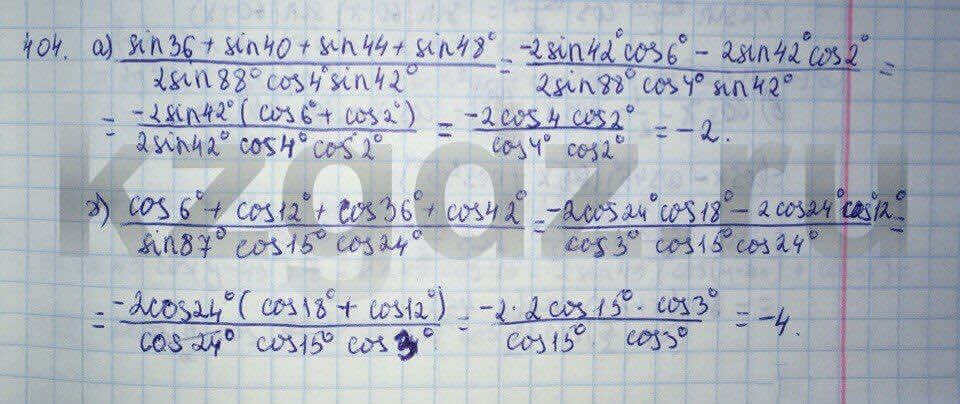 404. а) (sin36 + sin40 + sin44 + sin48°)/(2sin88° cos4° sin42°) = (-2sin42° cos6° - 2sin42° cos2°)/(2sin88° cos4° sin42°) =
= (-2sin42° (cos6° + cos2°))/(2sin42° cos4° cos2°) = (-2cos4 cos2°)/(cos4° cos2°) = -2.
б) (cos6° + cos12° + cos36° + cos42°)/(sin87° cos15° cos24°) = (-2cos24° cos18° - 2cos24° cos12°)/(cos3° cos15° cos24°) =
= (-2cos24° (cos18° + cos12°))/(cos24° cos15° cos3°) = (-2·2cos15° · cos3°)/(cos15° cos3°) = -4.
kzgaz.ru